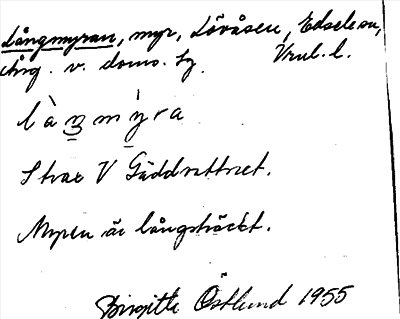 Långmyran, myr, Lövåsen, Edsele sn,
Ång. v. doms. Vrul. l.
làŋmỳra
Strax V Gäddvattnet.
Myren är långsträckt.
Birgitta Östlund 1955